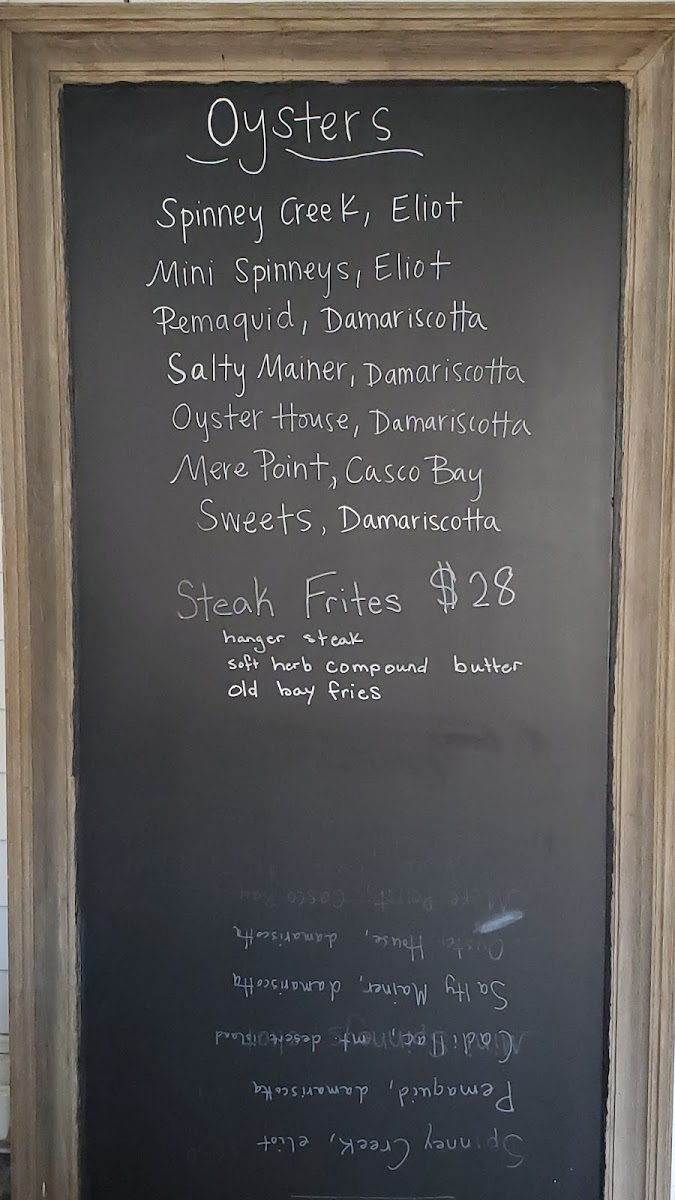 Oysters
Spinney Creek, Eliot
Mini Spinneys, Eliot
Pemaquid, Damariscotta
Salty Mainer, Damariscotta
Oyster House, Damariscotta
Mere Point, Casco Bay
Sweets, Damariscotta
Steak Frites $28
hanger steak
soft herb compound butter
old bay fries
Spinney Creek, eliot
Pemaquid, damariscotta
mt desert island
Salty Mainer, damariscotta
Oyster House, damariscotta
Mere Point, Casco Bay